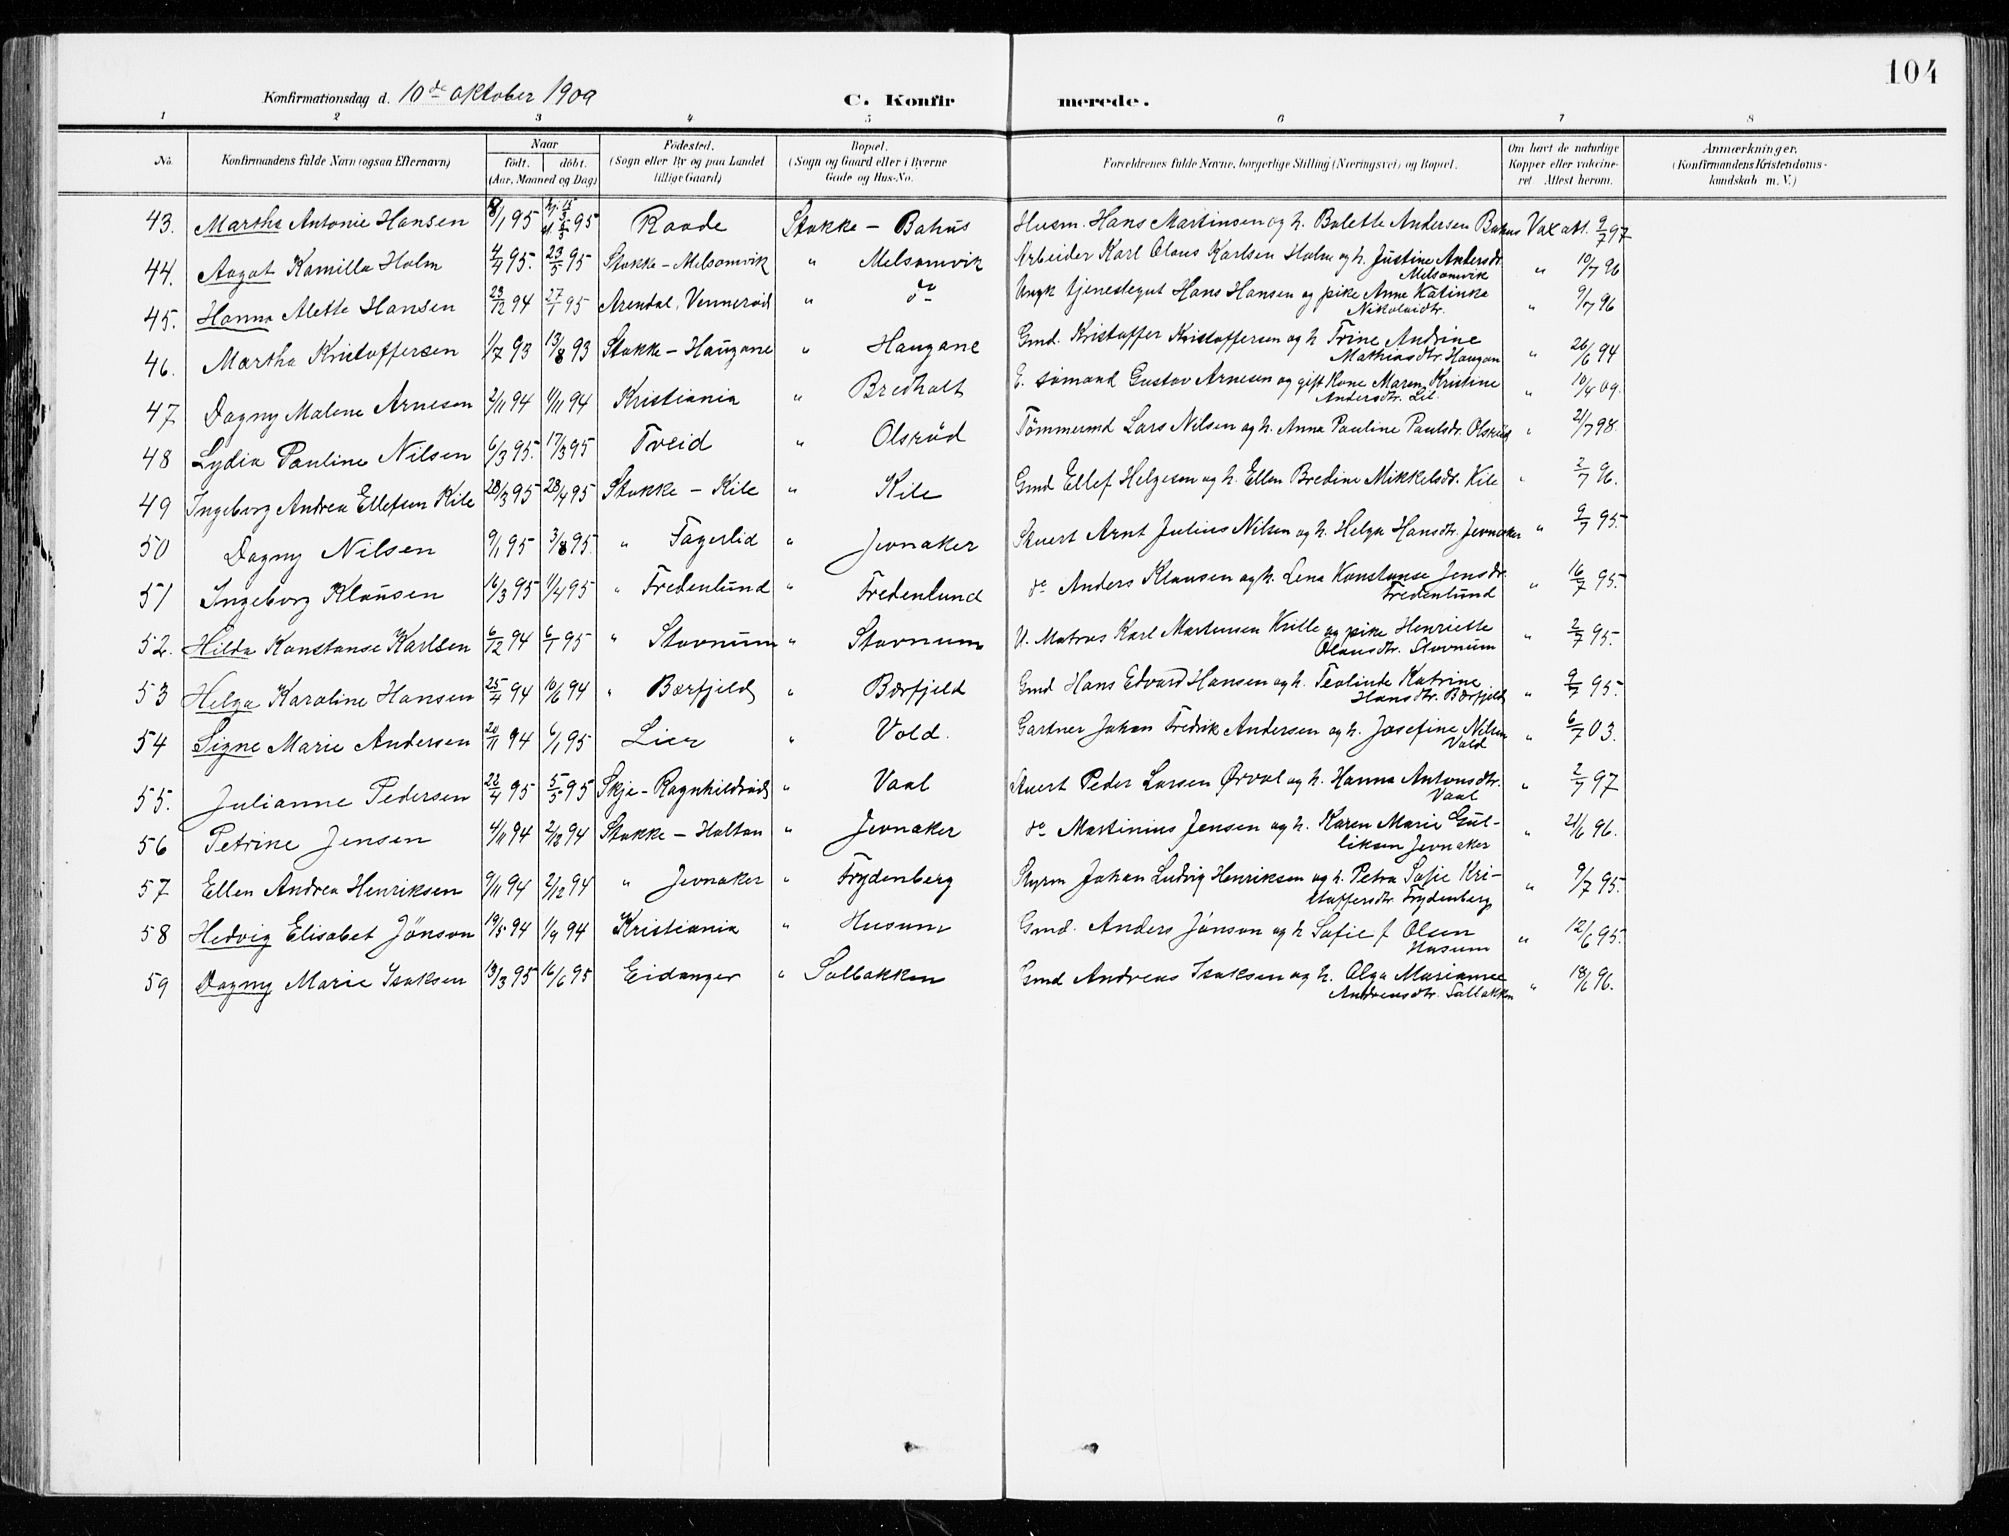 104
Konfirmationsdag d. 10de oktober 1909 C. Konfirmerede.
1 2 3 4 5 6 7 8
No. Konfirmandens fulde Navn (ogsaa Efternavn) Naar født. døbt. (Aar, Maaned og Dag) Fødested. (Sogn eller By og paa Landet tillige Gaard) Bopæl. (Sogn og Gaard eller i Byerne Gade og Hus-No. Forældrenes fulde Navne, borgerlige Stilling (Næringsvei) og Bopæl. Om havt de naturlige Kopper eller vakcineret. Attest herom. Anmærkninger. (Konfirmandens Kristendomskundskab m. V.)
43. Martha Antonie Hansen 8/1 95 hj. 15/3 95 Raade Stokke - Bahus Husm. Hans Martinsen og h. Bolette Andersen Bahus Vax att. 2/7 97
44. Aagot Kamilla Holm 4/4 95. 23/5 95 Stokke - Melsomvik " Melsomvik Arbeider Karl Olaus Karlsen Holm og h. Justine Andersdr.
Melsomvik " 10/7 96
45. Hanna Alette Hansen 29/12 94 27/1 95 Arendal, Vennerød " do Ungk tjenestegut Hans Hansen og pike Anne Katinka
Nikolaidtr. " 9/7 96
46. Martha Kristoffersen 1/7 93 13/8 93 Stokke - Haugane " Haugane Gmd. Kristoffer Kristoffersen og h Trine Andrine
Mathiasdtr. Haugan " 26/6 94
47 Dagny Malene Arnesen 2/11 94 11/11 94 Kristiania " Bredholt E. sømand Gustav Arnesen og gift Kone Maren Kristine
Andersdtr. " 10/4 09.
48 Lydia Pauline Nilsen 6/3 95. 17/3 95 Tveid " Olsrød Tømmermd Lars Nilsen og h. Anna Pauline Paulsdr. Olsrød " 21/7 98.
49 Ingeborg Andrea Ellefsen Kile 28/3 95 28/4 95 Stokke - Kile " Kile Gmd Ellef Helgesen og h. Ellen Bredine Mikkelsdr. Kile " 2/7 96.
50 Dagny Nilsen 9/1 95 3/8 95. " Fagerlid " Jevnaker Stuert Arnt Julius Nilsen og h. Helga Hansdtr. Jevnaker " 9/7 95.
51 Ingeborg Klausen 16/3 95 11/4 95 " Fredenlund " Fredenlund do Anders Klausen og h. Lena Konstanse Jensdr.
Fredenlund " 16/7 95.
52. Hilda Konstanse Karlsen 6/12 94 6/1 95 " Stovnum " Stovnum U. Matros Karl Martinsen Kville og pike Henriette
Olausdtr. Stovnum " 2/7 95.
53 Helga Karoline Hansen 25/4 94 10/6 94 " Bærfjeld " Bærfjeld Gmd Hans Edvard Hansen og h. Teolinde Katrine
Hansdtr. Bærfjeld " 9/7 95.
54 Signe Marie Andersen 20/11 94 6/1 95 Lier " Vold. Gartner Johan Fredrik Andersen og h. Josefine Nilsen
Vold " 6/7 03.
55. Julianne Pedersen 22/4 95 5/5 95 Skje - Ragnhildrød " Vaal Stuert Peder Larsen Ørvol og h. Hanna Antonsdtr.
Vaal " 2/7 97
56 Petrine Jensen 4/11 94 2/12 94 Stokke - Holtan " Jevnaker do Martinius Jensen og h. Karen Marie Gul-
liksen Jevnaker " 21/6 96.
57 Ellen Andrea Henriksen 9/11 94 2/12 94 " Jevnaker " Frydenberg Styrm Johan Ludvig Henriksen og h. Petra Sofie Kri-
stoffersdtr Frydenberg " 9/7 95.
58 Hedvig Elisabet Jönson 19/5 94 1/9 94 Kristiania " Husum Gmd. Anders Jönson og h Sofie f Olsen
Husum " 12/6 95.
59 Dagny Marie Isaksen 13/3 95 16/6 95 Eidanger " Solbakken Gmd Andreas Isaksen og h. Olga Marianne
Andreasdtr. Solbakken " 18/6 96.